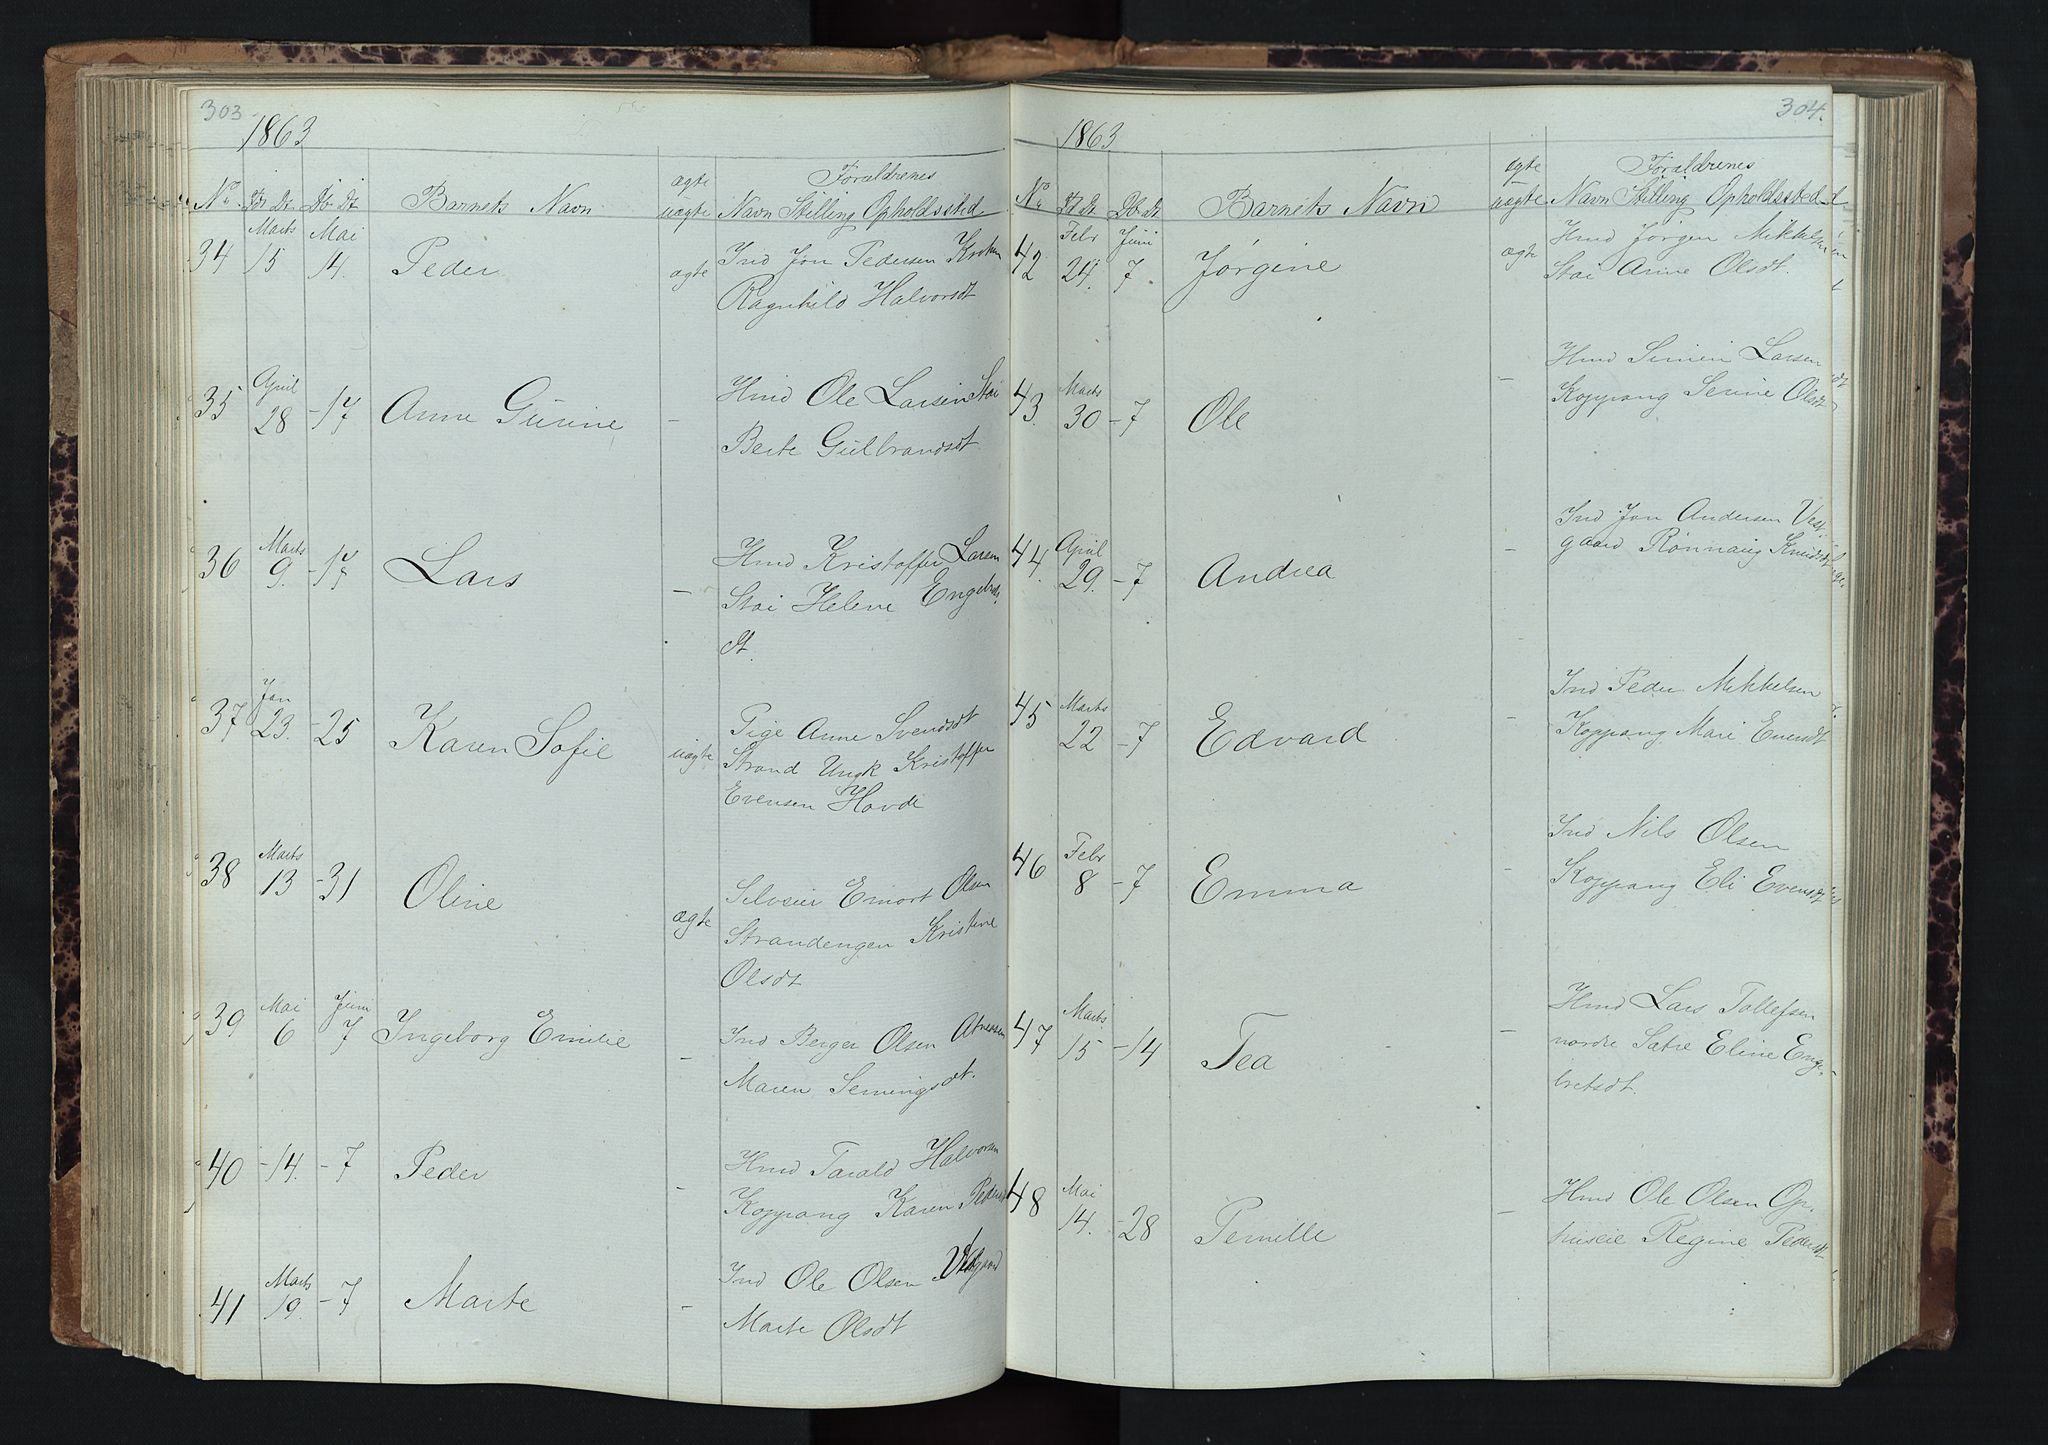 303
1863
No. Fd. Dt. Db. Dt. Barnets Navn ægte uægte Forældrenes Navn Stilling Opholdssted
34 Marts 15 Mai 14. Peder ægte Ind Jon Pedersen Kroken
Ragnhild Halvorsdt
35 April 28 -17 Anne Gurine - Hmd Ole Larsen Stai
Berte Gulbrandsdt.
36 Marts 9. -17 Lars - Hmd Kristoffer Larsen
Stai Helene Engebrets
dt.
37 Jan 23. -25 Karen Sofie uægte Pige Anne Svendsdt
Strand Ungk Kristoffer
Evensen Hovde
38 Marts 13 -31 Oline ægte Selveier Emort Olsen
Strandengen Kristine
Olsdt
39 Mai 6 Juni 7 Ingeborg Emilie - Ind Berger Olsen
Maren Semingsdt.
40 -14. -7 Peder - Hmd Tarald Halvorsen
Koppang Karen Pedersdt
41 Marts 19. -7 Marte - Ind Ole Olsen Vestgaard
Marte Olsdt
304.
1863
No. Fd. Dt. Db. Dt. Barnets Navn ægte uægte Forældrenes Navn Stilling Opholdssted
42 Febr 24. Juni 7 Jørgine ægte Hmd Jørgen Mikkelsen
Stai Anne Olsdt.
43. Marts 30 -7 Ole - Hmd Simen Larsen
Koppang Serine Olsdt
44. April 29. -7 Andrea - Ind Jon Andersen Vest-
gaard Rønnaug Knudsdt
45 Marts 22 -7 Edvard - Ind Peder Mikkelsen
Koppang Mari Evensdt
46 Febr 8 -7 Emma - Ind Nils Olsen
Koppang Eli Evensdt
47 Marts 15 -14 Tea - Hmd Lars Tollefsen
nordre Sætre Eline Enge-
bretsdt.
48 Mai 14. -28 Pernille - Hmd Ole Olsen Op-
huseie Regine Pedersdt